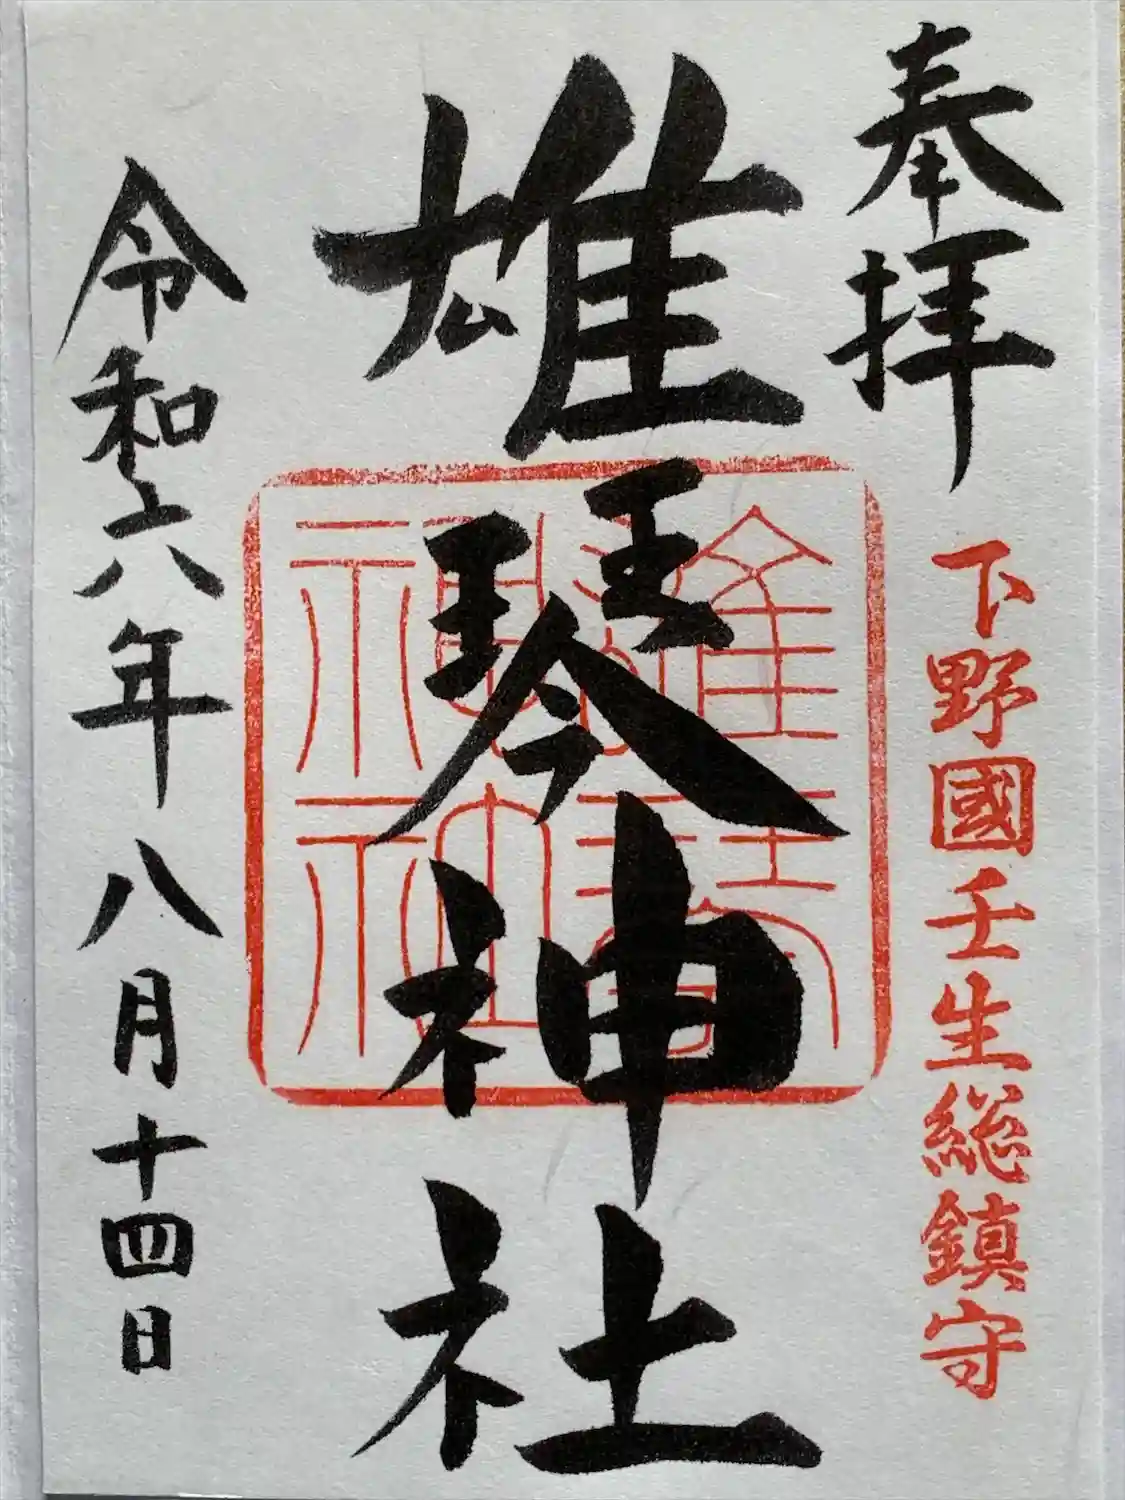 奉拝
下野國壬生総鎮守
雄琴神社
雄琴神社
令和六年八月十四日